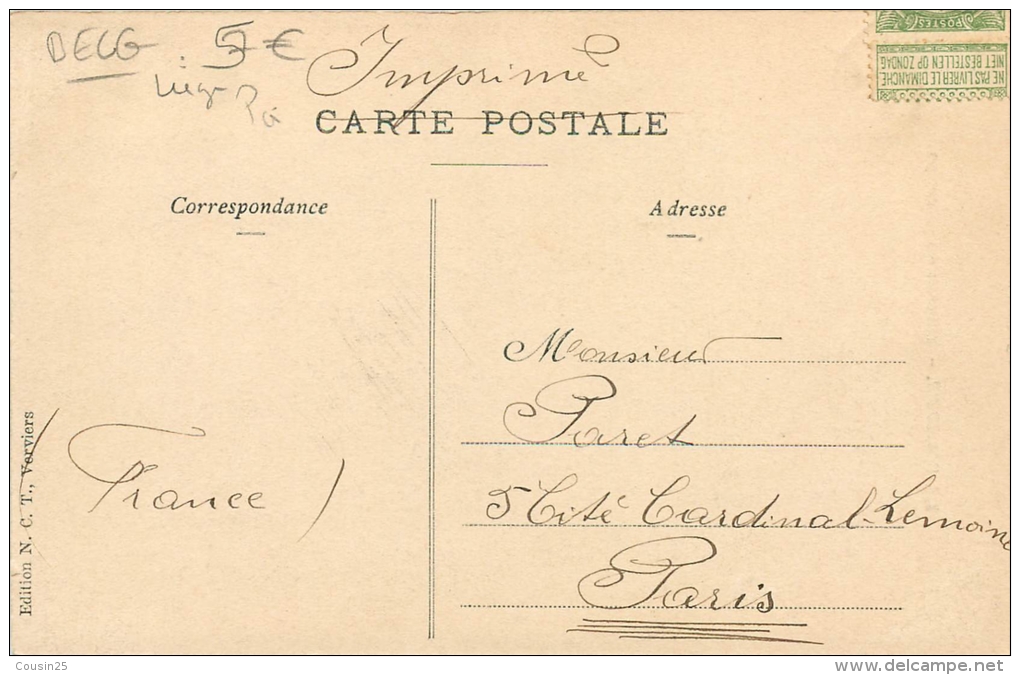 BELG 5 €
Imprimé
CARTE POSTALE
POSTES
NE PAS LIVRER LE DIMANCHE
NIET BESTELLEN OP ZONDAG
Correspondance
Adresse
Monsieur
Paret
5 Cité Cardinal-Lemoine
Paris
France
Edition N. C. T., Verviers
Cousin25
www.delcampe.net